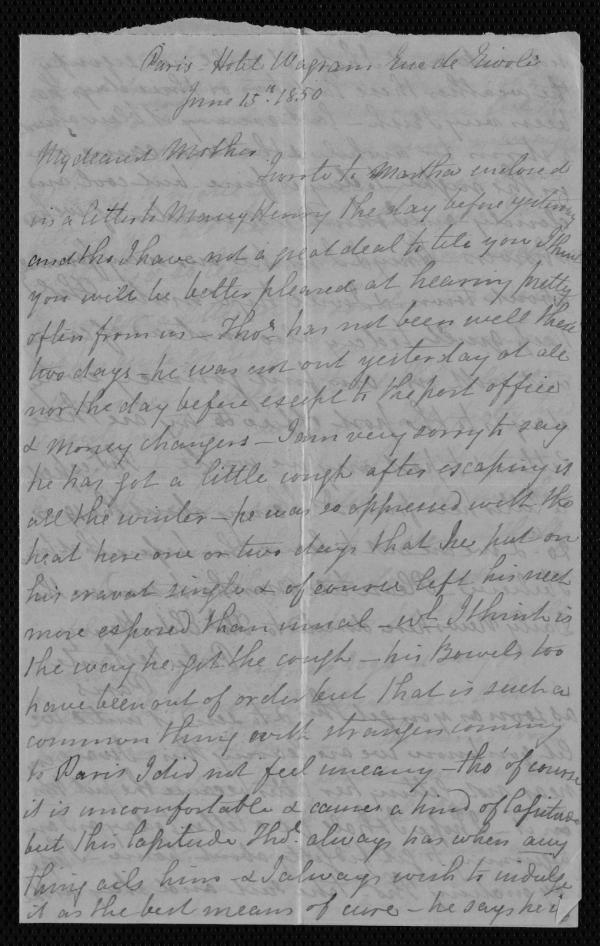 Paris - Hotel Wagram Rue de Rivoli
June 15th 1850
My dearest Mother
I wrote to Martha enclosed
in a letter to Henry the day before yesterday
and tho I have not a great deal to tell you I think
you will be better pleased at hearing pretty
often from us - Thos. has not been well these
two days - he was not out yesterday at all
nor the day before except to the post office
& money changers - I am very sorry to say
he has got a little cough after escaping it
all the winter - he was so oppressed with the
heat here one or two days that he put on
his cravat single & of course left his neck
more exposed than usual - wh. I think is
the way he got the cough - his Bowels too
have been out of order but that is such a
common thing with strangers coming
to Paris I did not feel uneasy - tho' of course
it is uncomfortable & causes a kind of lassitude
but this lassitude Thos. always has when any
thing ails him - & I always wish to indulge
it as the best means of cure - he says he is